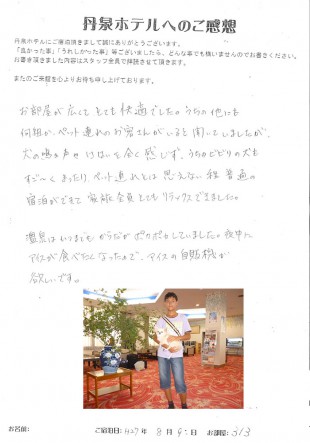 丹泉ホテルへのご感想
丹泉ホテルにご宿泊頂きまして誠にありがとうございます。
「良かった事」「うれしかった事」等ございましたら、どんな事でも構いませんのでお書きください。
お書き頂きました内容はスタッフ全員で拝読させて頂きます。
またのご来館を心よりお待ち申し上げております。
お部屋が広くてとても快適でした。うちの他にも
何組か、ペット連れのお客さんがいると聞いてましたが、
犬の鳴き声やけはいを全く感じず、うちのビビりの犬も
すご〜くまったり、ペット連れとは思えない程普通の
宿泊ができて家族全員とてもリラックスできました。
温泉はいつまでもからだがポカポカしていました。夜中に
アイスが食べたくなったので、アイスの自販機が
欲しいです。
お名前:
ご宿泊日: H27年 8月 9日 お部屋: 313